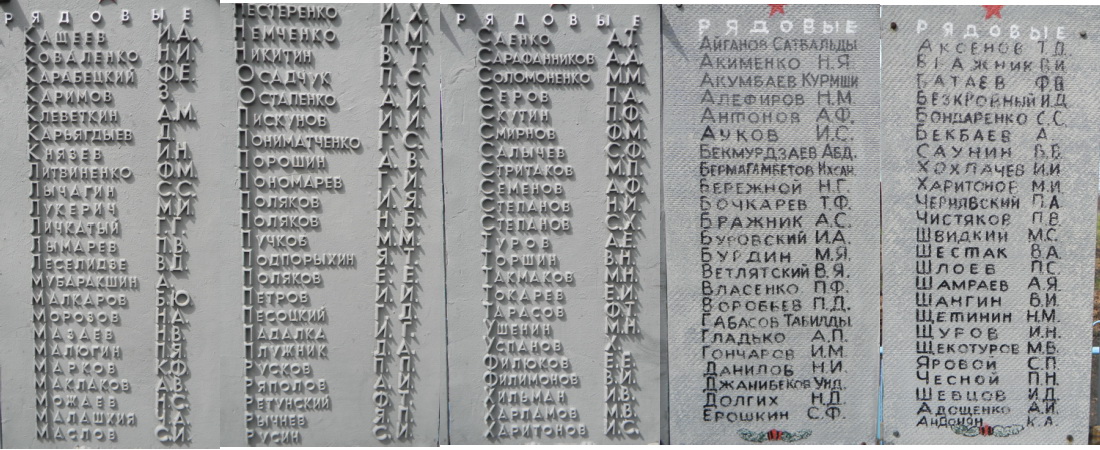 РЯДОВЫЕ
КАШЕЕВ И.А.
КОВАЛЕНКО Н.И.
КАРАБЕЦКИЙ Ф.Е.
КАРИМОВ З.
КЛЕВЕТКИН А.М.
КАРЬЯГДЫЕВ Д.
КНЯЗЕВ И.Н.
ЛИТВИНЕНКО Ф.М.
ЛЫЧАГИН С.С.
ЛУКЕРИЧ М.И.
ЛИЧКАТЫЙ Г.Г.
ЛЫМАРЕВ П.В.
ЛЕСЕЛИДЗЕ В.Д.
МУБАРАКШИН А.
МАЛКАРОВ Б.Ю.
МОРОЗОВ Н.А.
МАЗАЕВ Н.В.
МАЛЮГИН П.Я.
МАРКОВ К.Ф.
МАКЛАКОВ А.В.
МОЖАЕВ П.С.
МАЛАШКИЯ Ч.А.
МАСЛОВ С.И.
НЕСТЕРЕНКО И.Х.
НЕМЧЕНКО П.М.
НИКИТИН В.Т.
ОСАДЧУК П.С.
ОСТАПЕНКО А.И.
ПИСКУНОВ И.И.
ПОНИМАТЧЕНКО Г.С.
ПОРОШИН А.В.
ПОНОМАРЕВ Г.И.
ПОЛЯКОВ И.Я.
ПОЛЯКОВ Н.Б.
ПУЧКОВ М.М.
ПОДПОРЫХИН Я.Т.
ПОЛЯКОВ Е.Е.
ПЕТРОВ И.И.
ПЕСОЦКИЙ Г.Д.
ПАДАЛКА И.Г.
ПЛУЖНИК Д.А.
РУСКОВ П.Л.
РЯПОЛОВ А.И.
РЕТУНСКИЙ Ф.Т.
РЫЧНЕВ Я.П.
РУСИН С.И.
РЯДОВЫЕ
САЕНКО А.Г.
САРАФАННИКОВ А.А.
СОЛОМОНЕНКО М.М.
СЕРОВ П.А.
СКУТИН П.Ф.
СМИРНОВ Ф.М.
САЛЫЧЕВ С.Ф.
СТРИТАКОВ М.П.
СЕМЕНОВ А.Ф.
СТЕПАНОВ Н.И.
СТЕПАНОВ С.Х.
ТУРОВ А.Е.
ТОРШИН В.Н.
ТАКМАКОВ М.Н.
ТОКАРЕВ Е.И.
ТАРАСОВ Ф.Т.
УШЕНИН М.Н.
УСПАНОВ Х.
ФИЛЮКОВ Е.Е.
ФИЛИМОНОВ В.И.
ХИЛЬМАН И.В.
ХАРЛАМОВ М.В.
ХАРИТОНОВ И.С.
РЯДОВЫЕ
АЙГАНОВ САТВАЛЬДЫ
АКИМЕНКО Н.Я
АКУМБАЕВ КУРМИШИ
АЛЕФИРОВ Н.М.
АНТОНОВ А.Ф.
АУКОВ И.С.
БЕКМУРДЗАЕВ АБД.
БЕРМАГАМБЕТОВ ИХСАН.
БЕРЕЖНОЙ Н.Г.
БОЧКАРЕВ Т.Ф.
БРАЖНИК А.С.
БУРОВСКИЙ И.А.
БУРДИН М.Я.
ВЕТЛЯТСКИЙ В.Я.
ВЛАСЕНКО П.Ф.
ВОРОБЬЕВ П.Д.
ГАБАСОВ ТАБИЛДЫ
ГЛАДЬКО А.П.
ГОНЧАРОВ И.М.
ДАНИЛОВ Н.И
ДЖАНИБЕКОВ УНД.
ДОЛГИХ Н.Д.
ЕРОШКИН С.Ф.
РЯДОВЫЕ
АКСЕНОВ Т.Д.
БРАЖНИК В.И.
БАТАЕВ Ф.В
БЕЗКРОВНЫЙ И.Д.
БОНДАРЕНКО С.С.
БЕКБАЕВ А.
САУНИН В.В.
ХОХЛАЧЕВ И.И
ХАРИТОНОВ М.И.
ЧЕРНЯВСКИЙ П.А.
ЧИСТЯКОВ П.В.
ШВИДКИЙ М.С.
ШЕСТАК В.А.
ШЛОЕВ П.С.
ШАМРАЕВ А.Я.
ШАНГИН В.И.
ЩЕТИНИН Н.М.
ЩУРОВ И.Н.
ЩЕКОТУРОВ М.В.
ЯРОВОЙ С.П.
ЧЕСНОЙ П.Н.
ШЕВЦОВ И.Д.
АДОЩЕНКО А.И.
АНДОНЯН К.А.